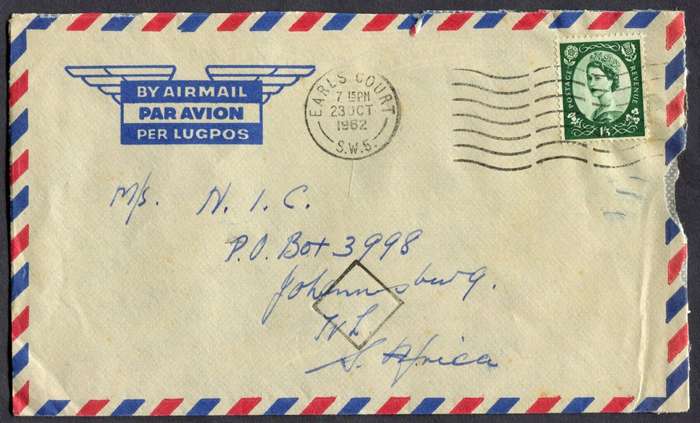 BY AIRMAIL
PAR AVION
PER LUGPOS
EARLS COURT
7 15PM
23 OCT
1962
S.W.5.
POSTAGE
REVENUE
1/3
M/s. N. I. C.
P.O. Box 3998
Johannesburg.
S. Africa